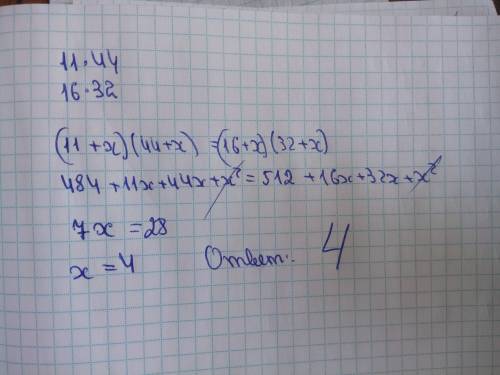 11·44
16·32
(11+x)(44+x)=(16+x)(32+x)
484+11x+44x+x²=512+16x+32x+x²
7x=28
x=4 Ответ: 4